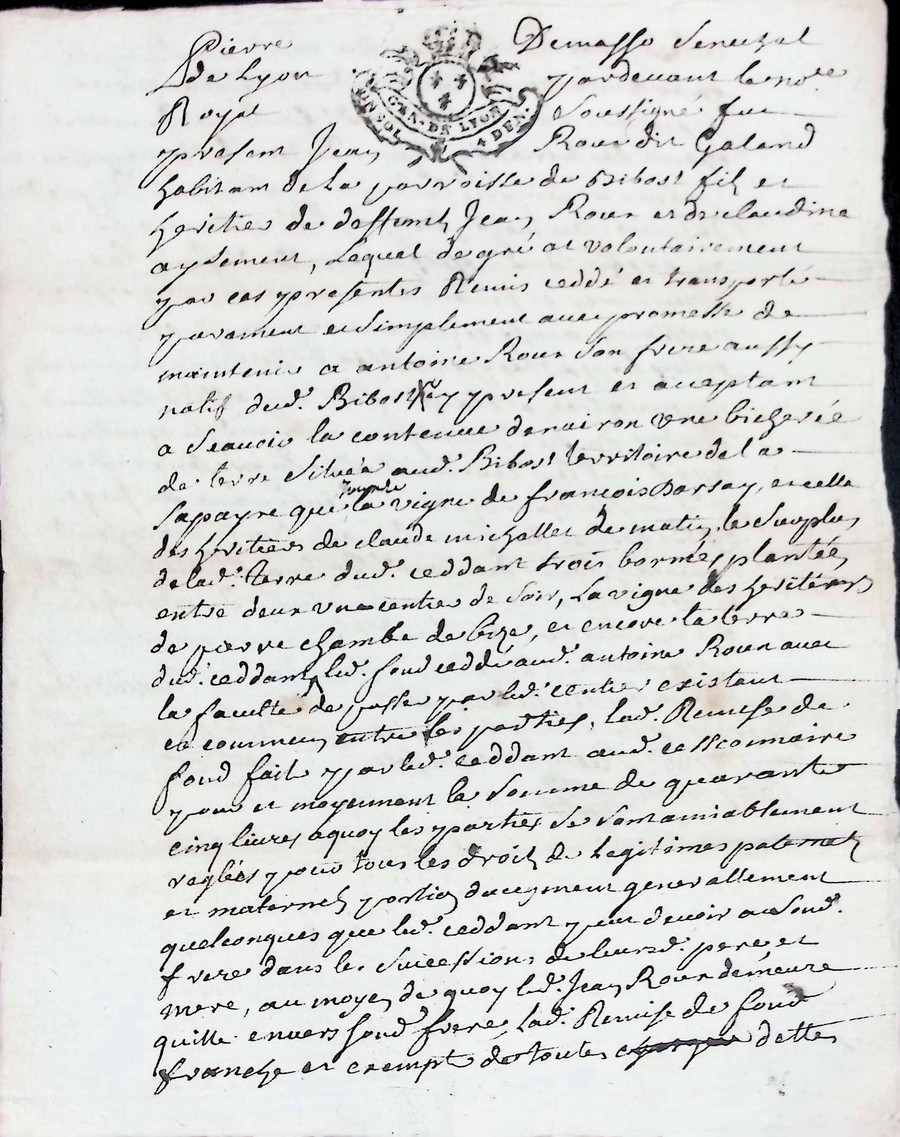 Pierre Demasso Senechal
de Lyon pardevant le nore
Royal Soussigné fut
present Jean Roux dit Galand
habitant de la parroisse de Bibost fils et
heritier de deffunts Jean Roux et de claudine
lequel de gré et volontairement
par ces presentes Remis ceddé et transporté
purement et simplement avec promesse de
maintenir a antoine Roux Son frere aussy
natif dud. Bibost cy present et acceptant
a Scavoir la contenue denviron une bicherée
de terre Située aud. Bibost territoire de la
que la vigne de francois Darsay, et celle
des heritiers de claude michallet de matin, le Surplus
de lad. terre dud. ceddant trois bornes plantées
entre deux un centier de Soir, La vigne des heritiers
de pierre chambe de bize, et encore la terre
dud. ceddant led. fond ceddé aud. antoine Roux avec
la faculté de passer par led. centier existant
et commun entre les parties, lad. Remise de
fond fait par led. ceddant aud. cessionnaire
pour et moyennant la Somme de quarante
cinq livres a quoy les parties Se Sont amiablement
reglées pour tous les droits de Legitimes paternels
et maternels portion daugment generallement
quelconques que led. ceddant peut devoir a Sond.
frere dans les Successions de leursd. pere et
mere, au moyen de quoy led. Jean Roux demeure
quitte envers Sond. frere, Lad. Remise de fond
franche et exempt de toutes charges dettes
GEN. DE LYON
UN SOL DEN.